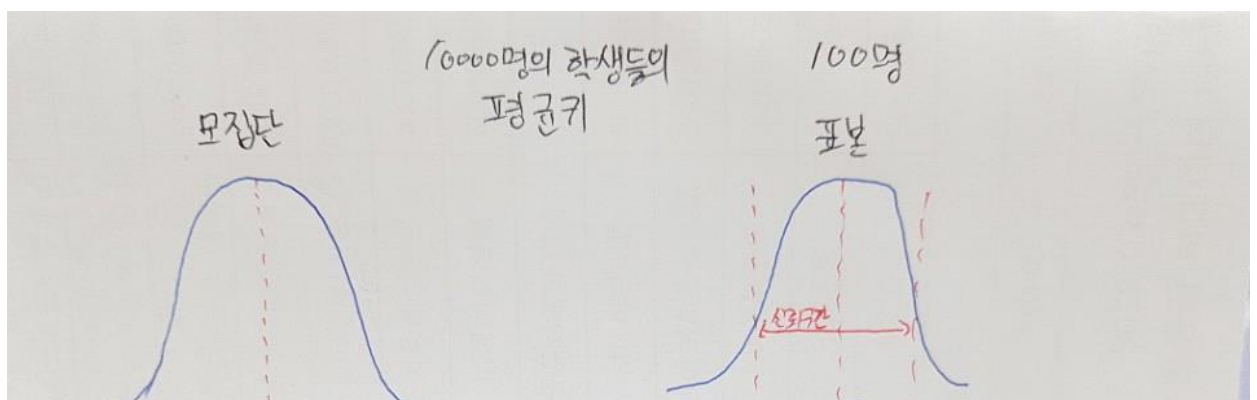 10000명의 학생들의
평균키
100명
모집단
표본
신뢰구간